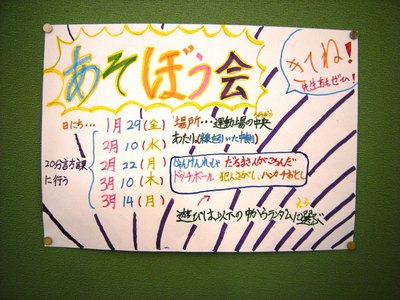 あそぼう会
きてね!
先生方もぜひ!
日にち… 1月29(金)
2月10(水)
2月22(月)
3月10(木)
3月14(月)
20分言方課に行う
場所…運動場の中央
あたり
じゃんけんれっしゃ だるまさんがころんだ
ドッチボール 犯人さがし、ハンカチおとし
遊びは以下の中からランダムに選ぶ